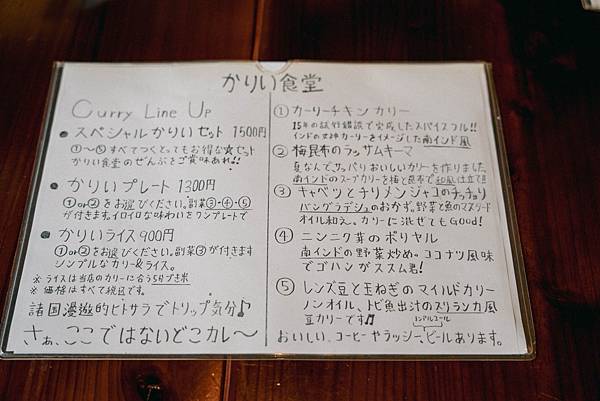 かりい食堂
Curry Line Up
● スペシャルかりいセット 1500円
①〜⑤すべてつくとってもお得な食セット
かりい食堂のぜんぶをご賞味あれ!!
● かりいプレート 1300円
①or②をお選びください。副菜③・④・⑤
が付きます。イロイロな味わいをワンプレートで
● かりいライス 900円
①or②をお選びください。副菜③が付きます
シンプルなカリー&ライス。
※ライスは当店のカリーに合う5分づき米
※価格はすべて税込です。
諸国漫遊的ヒトサラでトリップ気分♪
さぁ、ここではないどこカレ〜
① カーリーチキンカリー
15年の試行錯誤で完成したスパイスフル!!
インドの女神カーリーをイメージした南インド風
② 梅昆布のラッサムキーマ
夏なんで、サッパリおいしいカリーを作りました。
南インドのスープカリーを梅と昆布で和風仕立て!!
③ キャベツとチリメンジャコのチョッチョリ
バングラデシュのおかず。野菜と魚のマスタード
オイル和え。カリーに混ぜてもGOOD!
④ ニンニク芽のポリヤル
南インドの野菜炒め。ココナツ風味
でゴハンがススム君!
⑤ レンズ豆と玉ねぎのマイルドカリー
ノンオイル、トビ魚出汁のスリランカ風
豆カリーです♫
ノンアルコール
おいしい、コーヒーやラッシー、ビールあります。